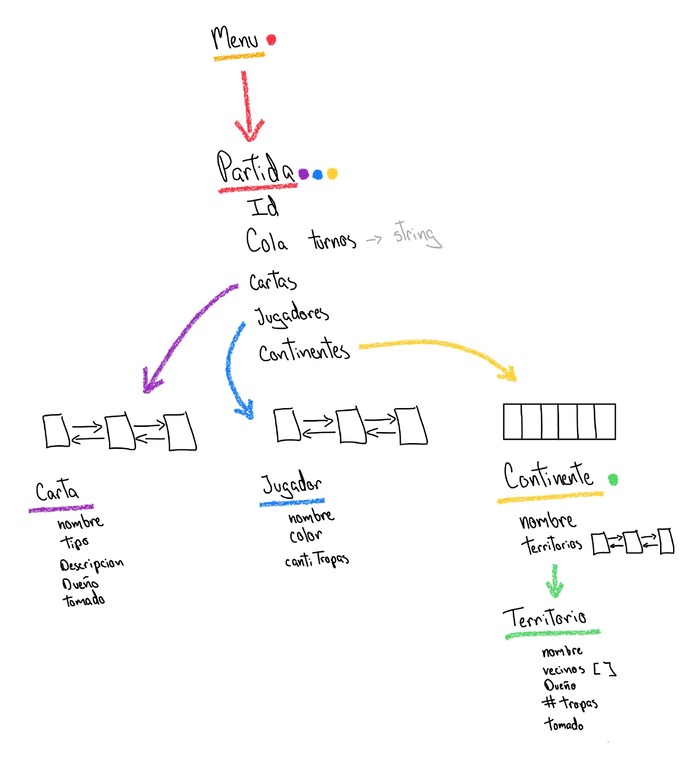 Menu
Partida
Id
Cola turnos → string
cartas
Jugadores
Continentes
Carta
nombre
tipo
Descripcion
Dueño
tomado
Jugador
nombre
color
cantiTropas
Continente
nombre
territorios
Territorio
nombre
vecinos []
Dueño
# tropas
tomado